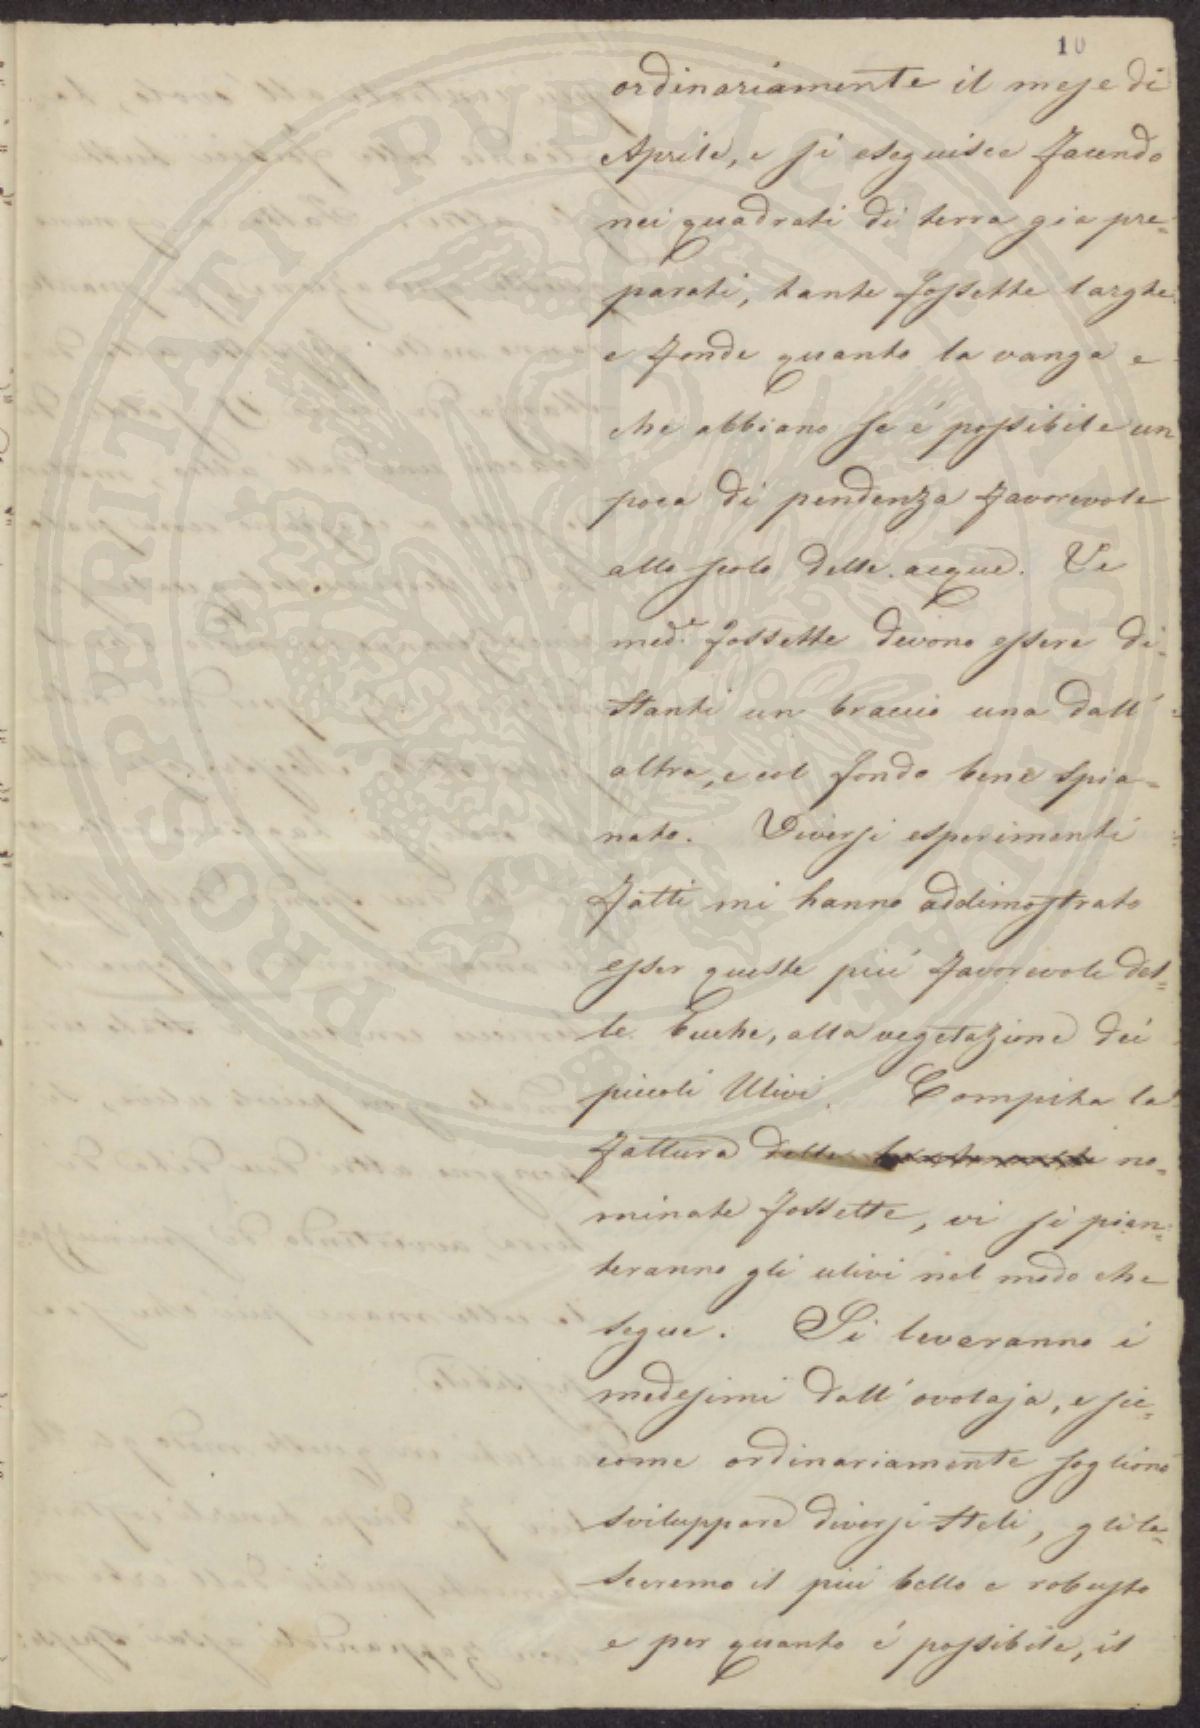 10
ordinariamente il mese di
Aprile, e si eseguisce facendo
nei quadrati di terra gia pre=
parati, tante fossette larghe
e fonde quanto la vanga e
che abbiano se é possibile un
poca di pendenza favorevole
allo scolo delle acque. Le
med.e fossette devono essere di=
stanti un braccio una dall'
altra, e col fondo bene spia=
nato. Diversi esperimenti
fatti mi hanno addimostrato
esser queste piú favorevoli del=
le buche, alla vegetazione dei
piccoli Ulivi. Compita la
fattura delle no=
minate fossette, vi si pian=
teranno gli ulivi nel modo che
segue. Si leveranno i
medesimi dall'ovolaja, e sic=
come ordinariamente sogliono
sviluppare diversi steli, gli la=
sceremo il piú bello e robusto
e per quanto é possibile, il
PROSPERITATI PVBLICAE AVGENDAE